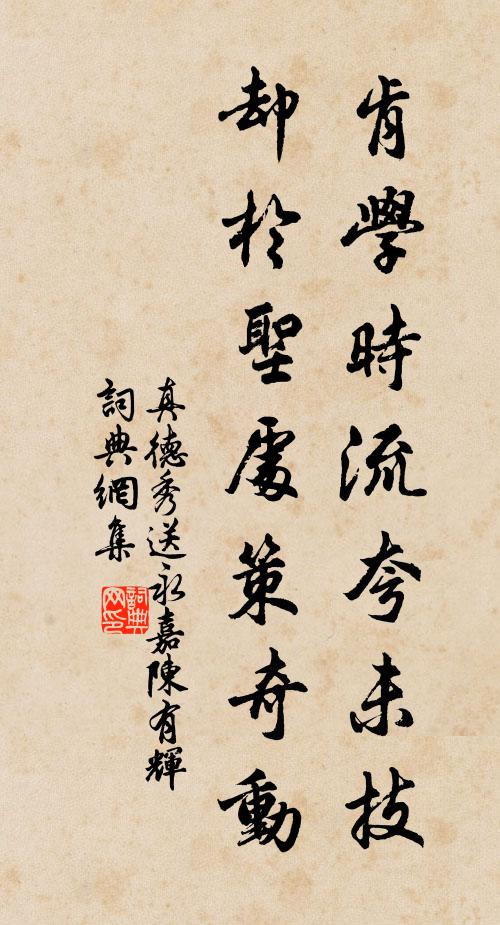 肯學時流夸末技
却於聖處策奇動
真德秀送永嘉陳有輝
詞典網集
詞典
网印